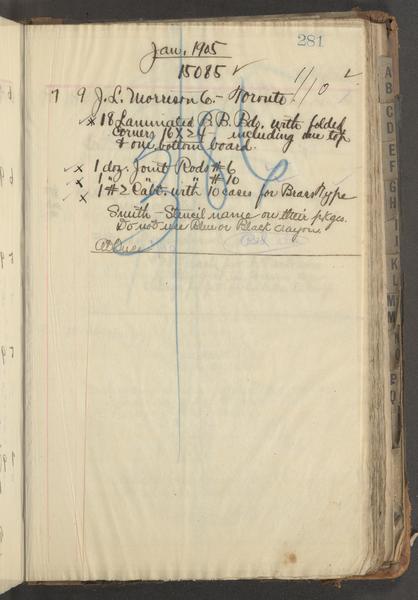 281
Jan, 1905
15085 ✓
7 9 J. L. Morrison Co.- Toronto 1/10
18 Laminated P. B. Bds. with folded
corners 16 x 24 - including one top
& one bottom board.
1 doz. Joint Rods #6
1 " " " #10
1 #2 Cabt. with 10 cases for Brass type
Smith - Stencil name on their pkgs.
Do not use Blue or Black crayon.
A
B
C
D
E
F
G
H
I
J
K
L
M